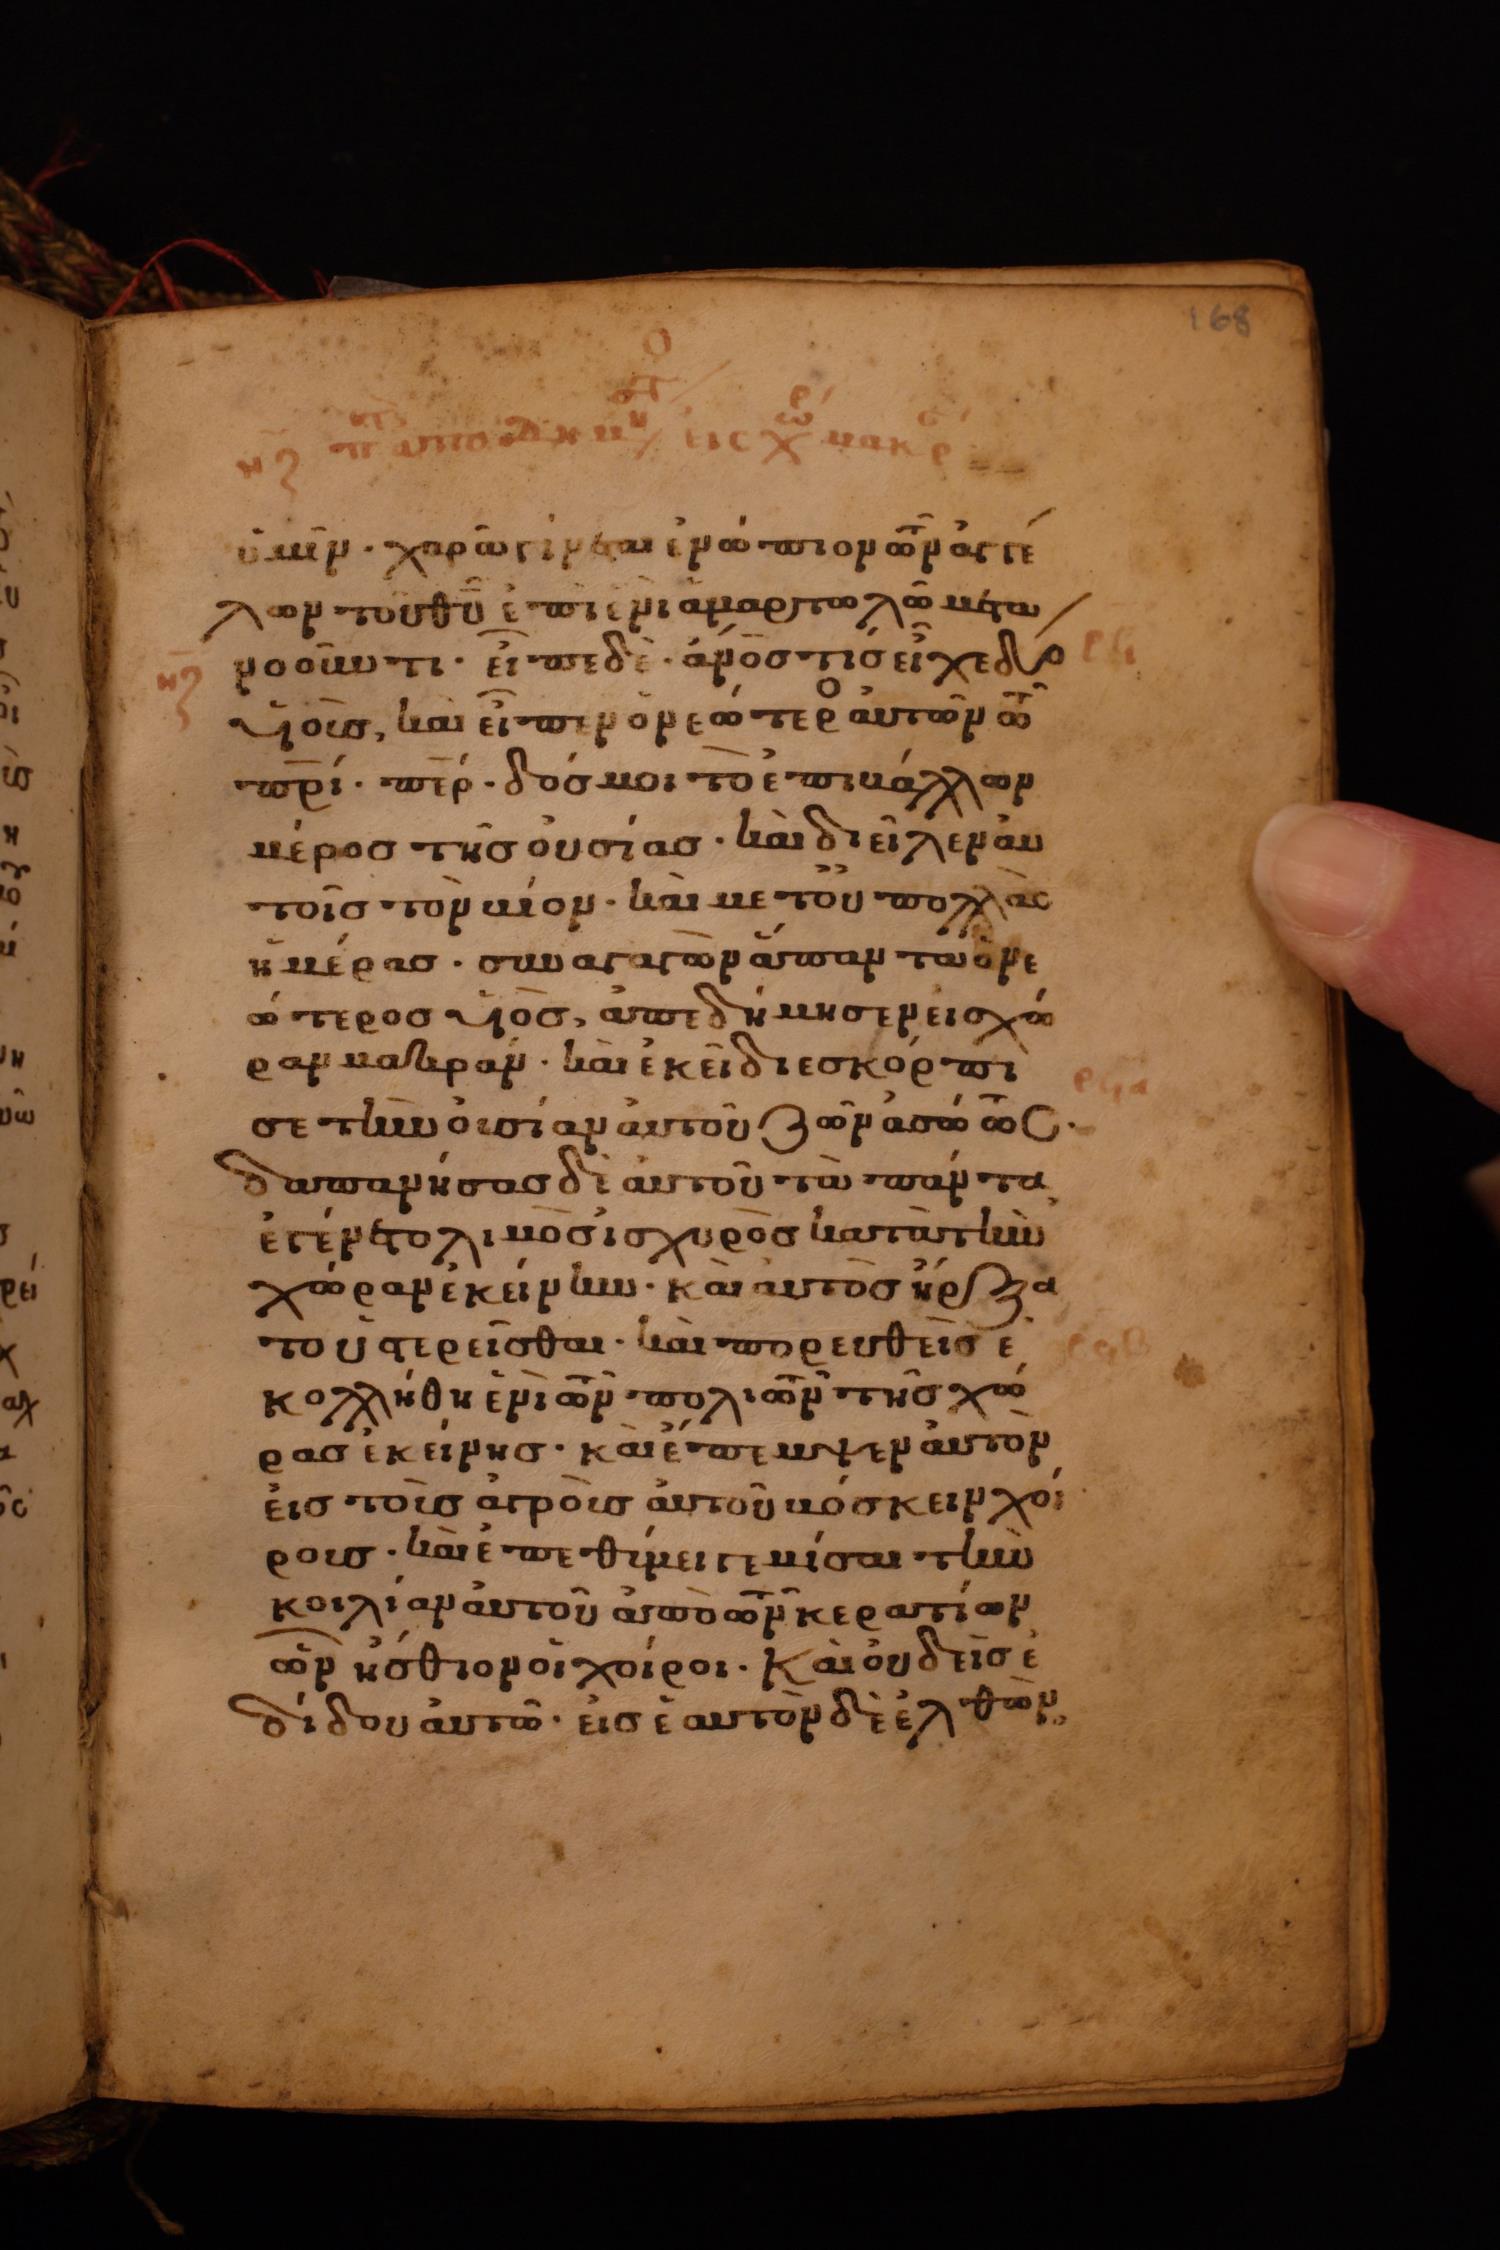 168
νζ
ὑμῖν · χαρὰ γίνεται ἐνώπιον τῶν ἀγγέ
λων τοῦ θυ ἐπὶ ἑνὶ ἁμαρτωλῶ μετα
νοοῦντι · εἶπε δὲ · ἀνος τὶς εἶχε δύο
νζ
υἱοὺς, καὶ εἶπεν ὁ νεώτερος αὐτῶν τῶ
πρί · περ · δός μοι τὸ ἐπιβάλλων
μέρος τῆς οὐσίας · καὶ διεῖλεν αὐ
τοῖς τὸν βίον · καὶ μετ οὐ πολλὰς
ἡμέρας · συναγαγὼν ἅπαντα ὁ νε
ώτερος υἱὸς, ἀπεδήμησεν εἰς χώ
ραν μακράν · καὶ ἐκεῖ διεσκόρπι
ρϟα
σε τὴν οὐσίαν αὐτοῦ ζῶν ἀσώτως ·
δαπανήσας δὲ αὐτοῦ τὰ πάντα
ἐγένετο λιμὸς ἰσχυρὸς κατὰ τὴν
χώραν ἐκείνην · καὶ αὐτὸς ἤρξα
το ὑστερεῖσθαι · καὶ πορευθεὶς ἐ
ρϟβ
κολλήθη ἑνὶ τῶν πολιτῶν τῆς χώ
ρας ἐκείνης · καὶ ἔπεμψεν αὐτὸν
εἰς τοὺς ἀγροὺς αὐτοῦ βόσκειν χοί
ρους · καὶ ἐπεθύμει γεμίσαι τὴν
κοιλίαν αὐτοῦ ἀπὸ τῶν κερατίων
ὧν ἤσθιον οἱ χοίροι · Καὶ οὐδεὶς ἐ
δίδου αὐτῶ · εἰς ἑαυτὸν δὲ ἐλθὼν